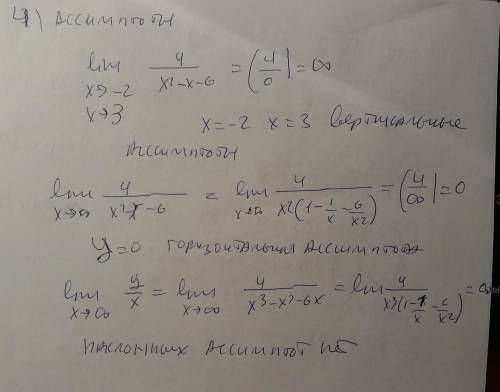 4) Ассимптоты
lim x→-2 x→3 4/(x²-x-6) = (4/0) = ∞
x=-2 x=3 вертикальные
Ассимптоты
lim x→∞ 4/(x²-x-6) = lim x→∞ 4/(x²(1-1/x-6/x²)) = (4/∞) = 0
y=0 горизонтальная ассимптота
lim x→∞ y/x = lim x→∞ 4/(x³-x²-6x) = lim 4/(x³(1-1/x-6/x²)) =
наклонных ассимптот нет